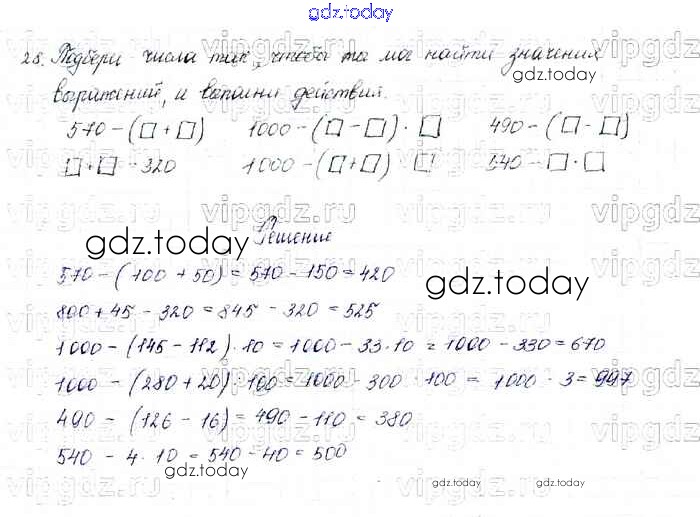 gdz.today
25. Подбери числа так, чтобы ты мог найти значения
выражений, и выполни действия.
570 - (□ + □) 1000 - (□ - □) · □ 490 - (□ - □)
□ + □ - 320 1000 - (□ + □) · □ 540 - □ · □
Решение
570 - (100 + 50) = 570 - 150 = 420
800 + 45 - 320 = 845 - 320 = 525
1000 - (145 - 112) · 10 = 1000 - 33 · 10 = 1000 - 330 = 670
1000 - (280 + 20) · 100 = 1000 - 300 · 100 = 1000 · 3 = 997
490 - (126 - 16) = 490 - 110 = 380
540 - 4 · 10 = 540 - 40 = 500
gdz.today
gdz.today
gdz.today
gdz.today
gdz.today
vipgdz.ru